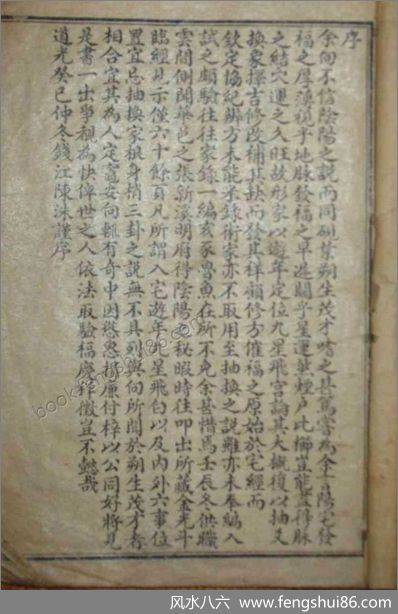 序
余向不信陰陽之說而同硯葉朔生茂才嗜之甚篤嘗為余言陰宅發
福之厚薄視乎地脉發福之早遲關乎星運
之結穴運之久旺故形家以遊年定位九星飛宮論其大概復以抽爻
換象擇吉修改補其缺而發其祥顧修方催福之原始於宅經而
欽定協紀辨方未能采錄術家亦不取用至抽換之說雖亦未奉編入
試之頗驗往往家錄一編亥豕魯魚在所不免余甚惜焉壬辰冬供職
雲間側聞華邑之張新溪明府得陰陽之秘暇時往叩出所藏金光斗
臨經見示僅六十餘頁凡所謂入宅遊年九星飛白以及內外六事位
置宜忌抽換家根身梢三卦之說無不具列與向所聞於朔生茂才者
相合宜其為人定竈安向輒有奇中因慫恿捐廉付梓以公同好將見
是書一出爭覩為快俾世之人依法取驗福慶祥徵豈不懿哉
道光癸巳仲冬錢江陳洙謹序
风水八六 / www.fengshui86.com